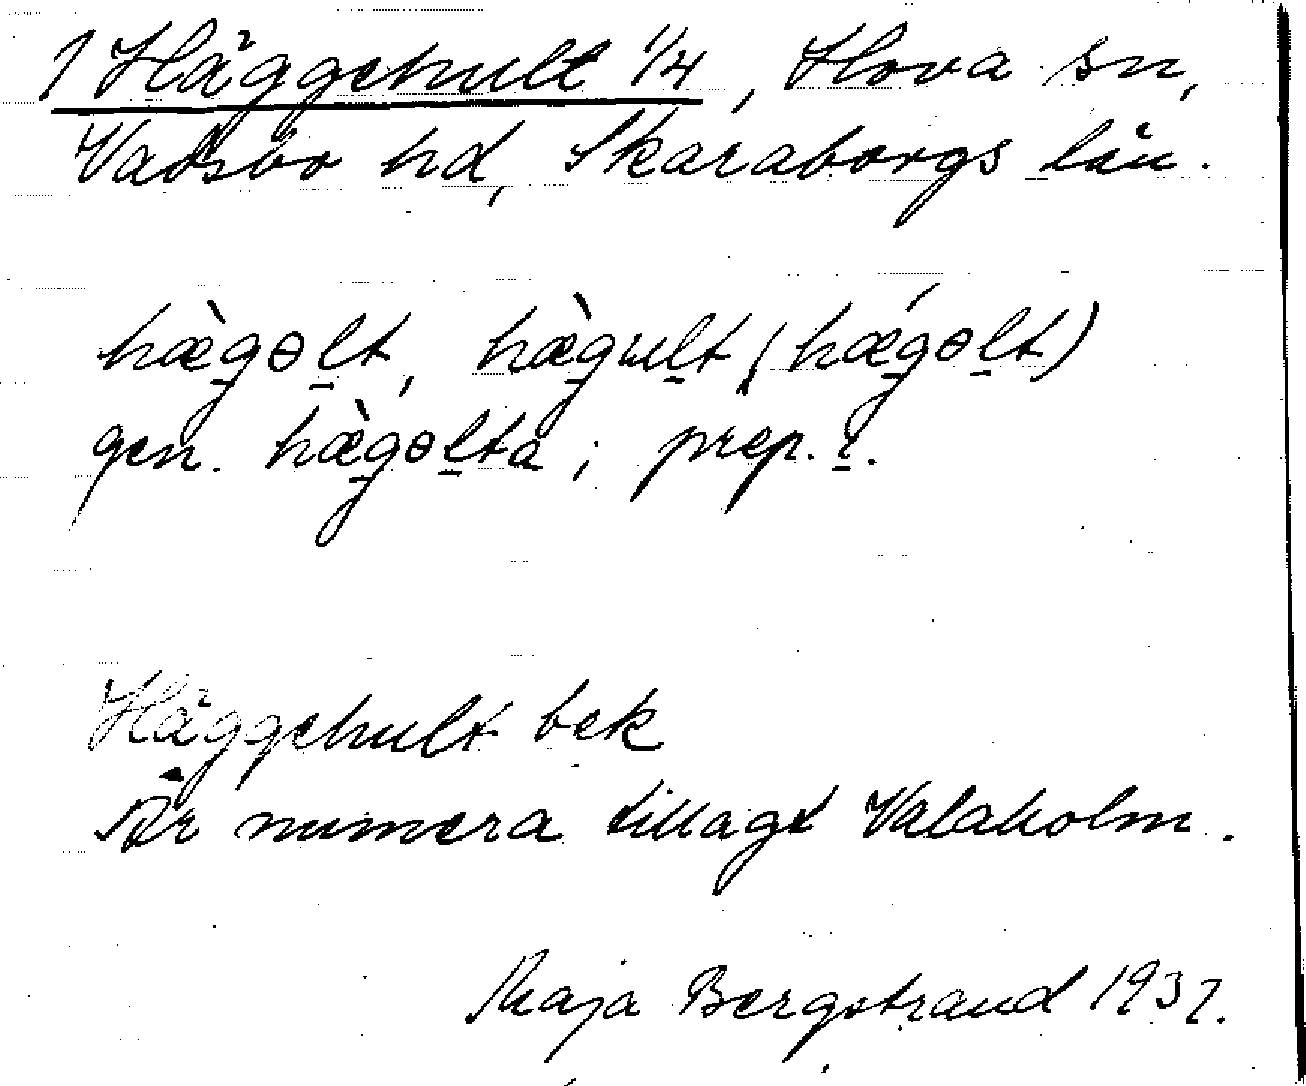 1 Häggehult 1/4, Hova sn,
Vadsbo hd, Skaraborgs län.
hæ̀gɵlt, hæ̀gult (hǽgɵlt)
gen. hæ̀gɵlta; prep. i.
Häggehult bek
Är numera tillagt Valaholm.
Maja Bergstrand 1937.